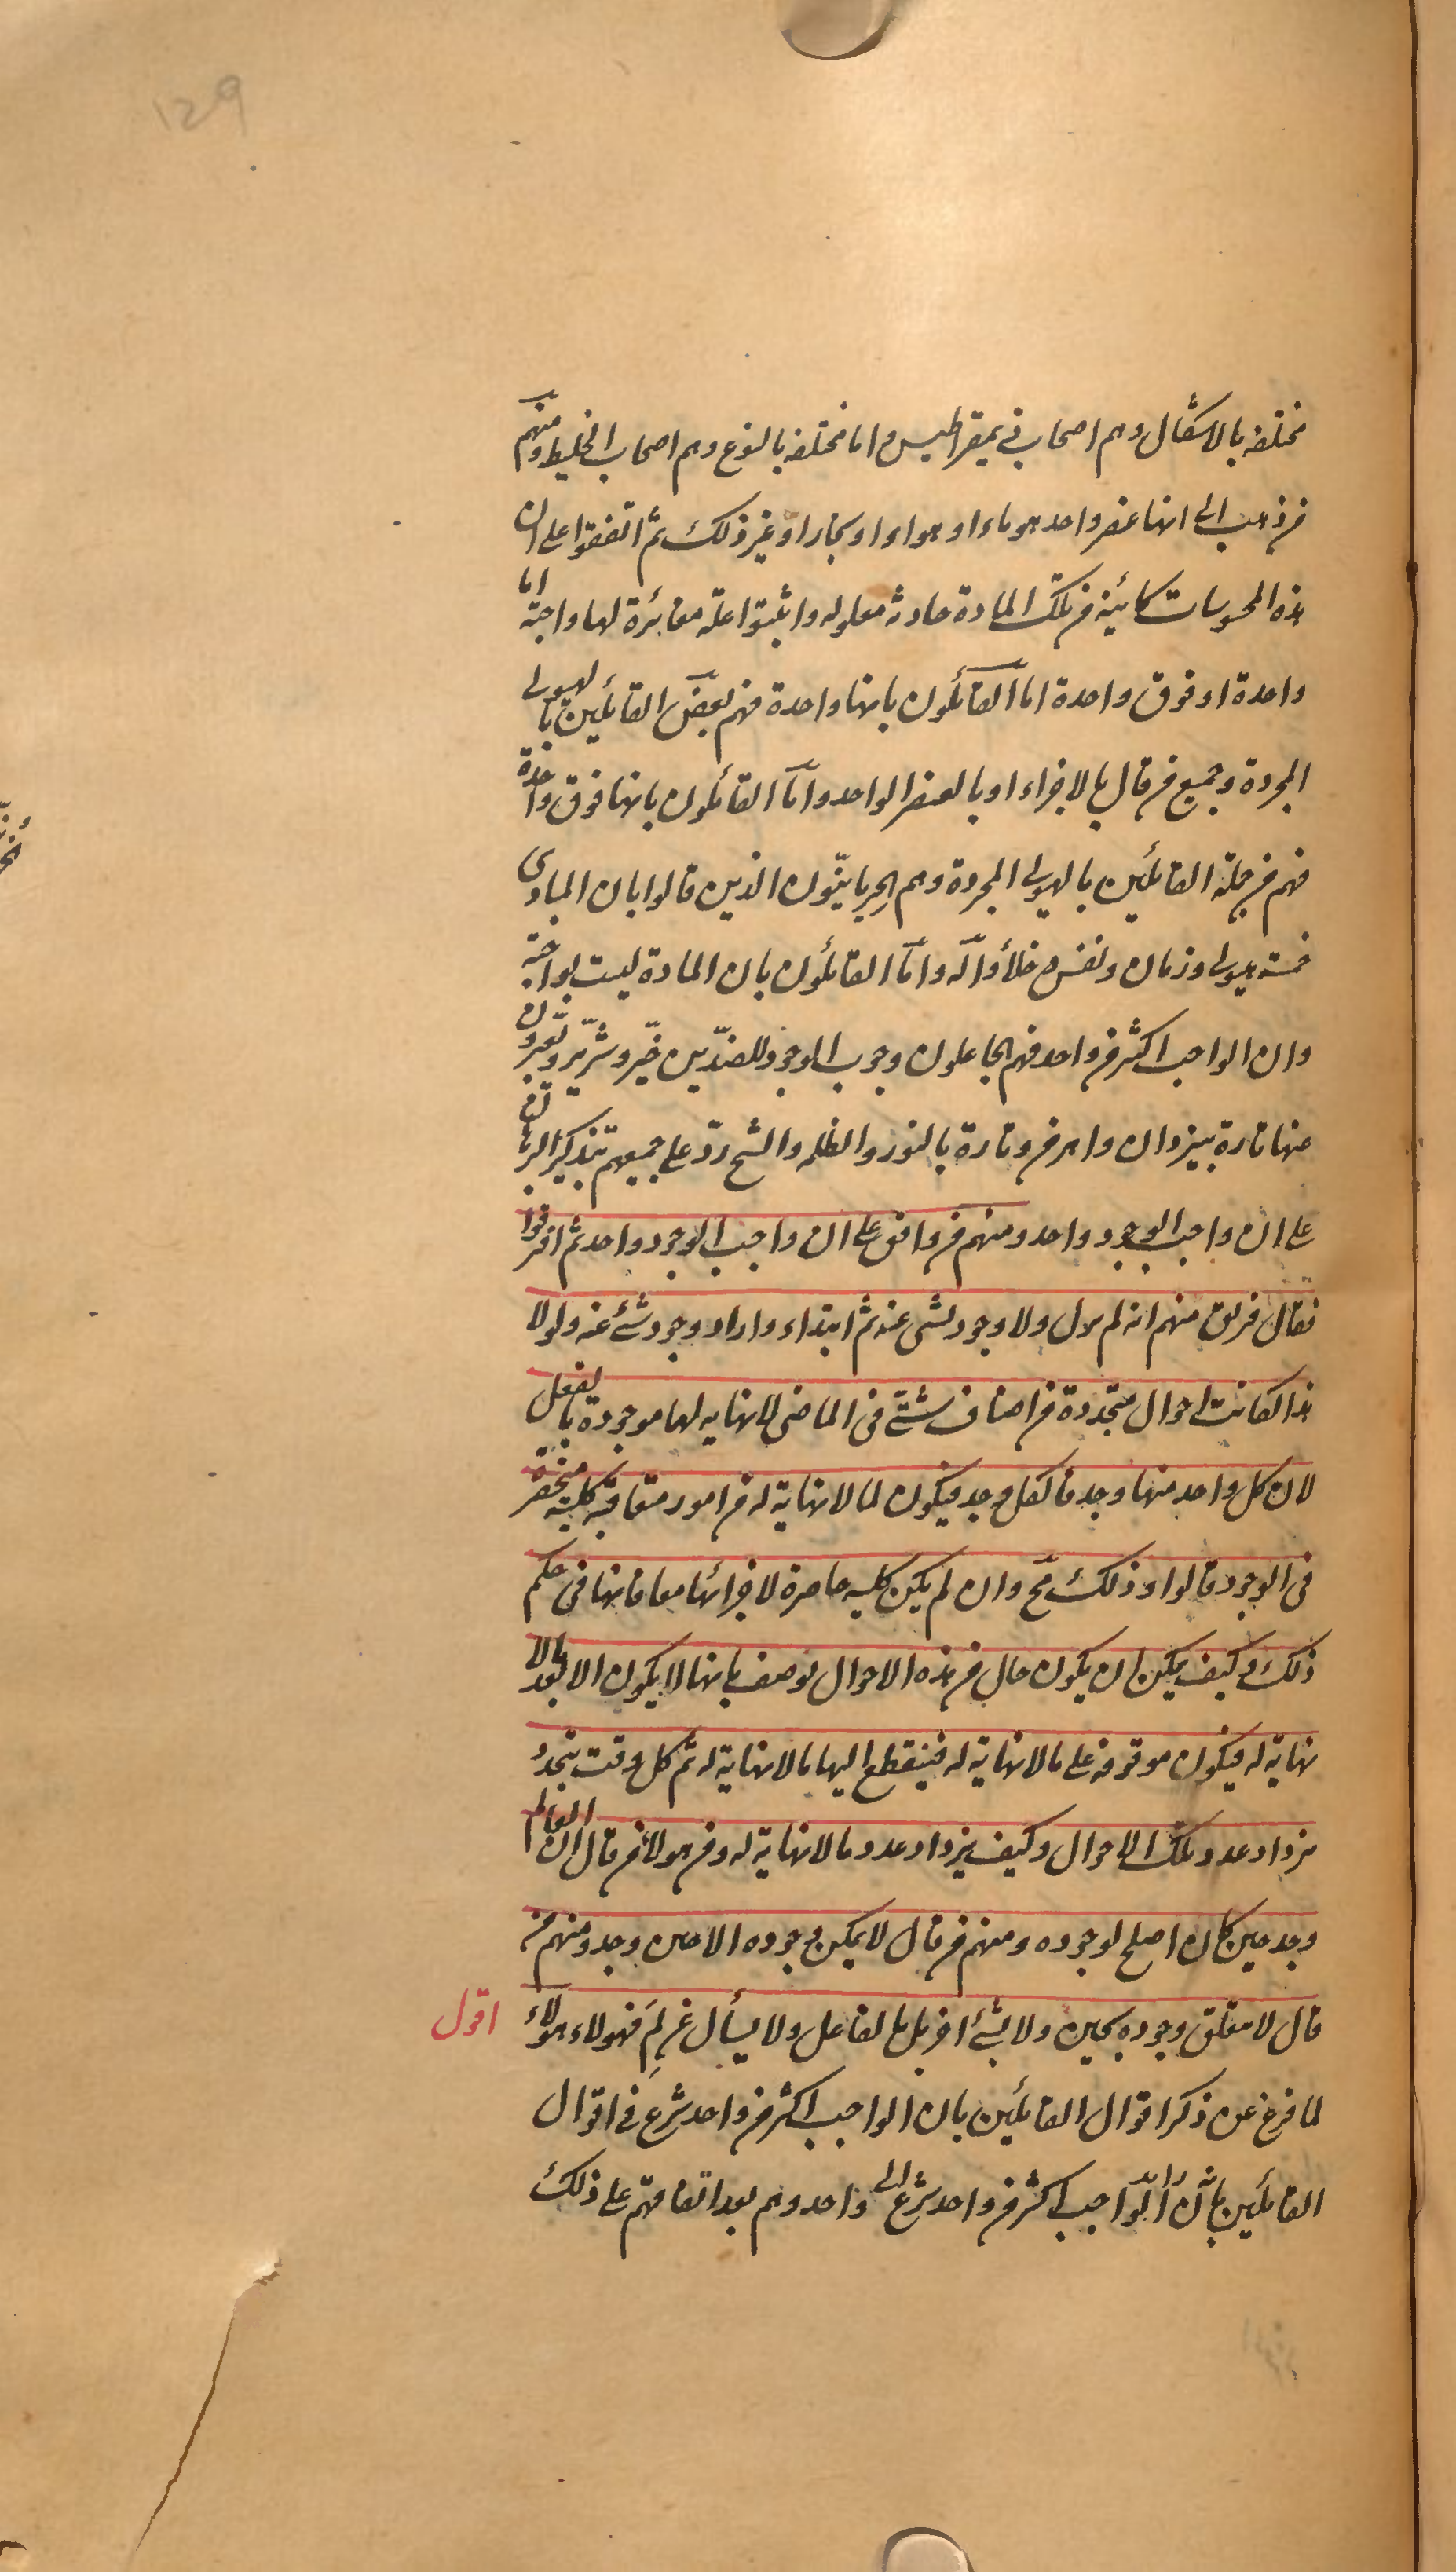 129
مختلفة بالاشكال وهم اصحاب ذيمقراطيس واما مختلفة بالنوع وهم اصحاب الخليط ومنهم
من ذهب الى انها عنصر واحد هو ماء او هواء او بخار او غير ذلك ثم اتفقوا على ان
هذه المحسوسات كائنة من تلك المادة حادثة معلولة واثبتوا علة مغائرة لها واجبة اما
واحدة او فوق واحدة اما القائلون بانها واحدة فهم بعض القائلين بالهيولى
المجردة وجميع من قال بالاجزاء او بالعنصر الواحد واما القائلون بانها فوق واحدة
فهم من جملة القائلين بالهيولى المجردة وهم الحربانيّون الذين قالوا بان المبادى
خمسة هيولى وزمان ونفس وخلأ واله واما القائلون بان المادة ليست بواجبة
وان الواجب اكثر من واحد فهم الجاعلون وجوب الوجود للضدّين خيّر وشرّير ويعبرون
عنها تارة بيزدان واهرمن وتارة بالنور والظلمة والشيخ ردّ على جميعهم بتذكير البرهان
على ان واجب الوجود واحد ومنهم من وافق على ان واجب الوجود واحد ثم افترقوا
فقال فريق منهم انه لم يزل ولا وجود لشى عنه ثم ابتداء واراد وجود شئ عنه ولولا
هذا لكانت احوال متجددة من اصناف شتى فى الماضى لا نهاية لها موجودة بالفعل
لان كل واحد منها وجد فالكل وجد فيكون لما لا نهاية له من امور متعاقبة كلية منحصرة
فى الوجود قالوا وذلك مح وان لم يكن كلية حاصرة لاجزائها معا فانها فى حكم
ذلك وكيف يمكن ان يكون حال من هذه الاحوال توصف بانها لا يكون الا بعد ما لا
نهاية له فيكون موقوفة على ما لا نهاية له فينقطع اليها ما لا نهاية له ثم كل وقت يتجدد
يزداد عدد تلك الاحوال وكيف يزداد عدد ما لا نهاية له ومن هولاء من قال ان العالم
وجد حين كان اصلح لوجوده ومنهم من قال لا يمكن وجوده الا حين وجد ومنهم من
قال لا يتعلق وجوده بحين ولا بشئ اخر بل بالفاعل ولا يسأل عن لِمَ فهولاء هولاء اقول
لما فرغ عن ذكر اقوال القائلين بان الواجب اكثر من واحد شرع فى اقوال
القائلين بان الواجب اكثر من واحد شرع الى واحد وهم بعد اتفاقهم على ذلك